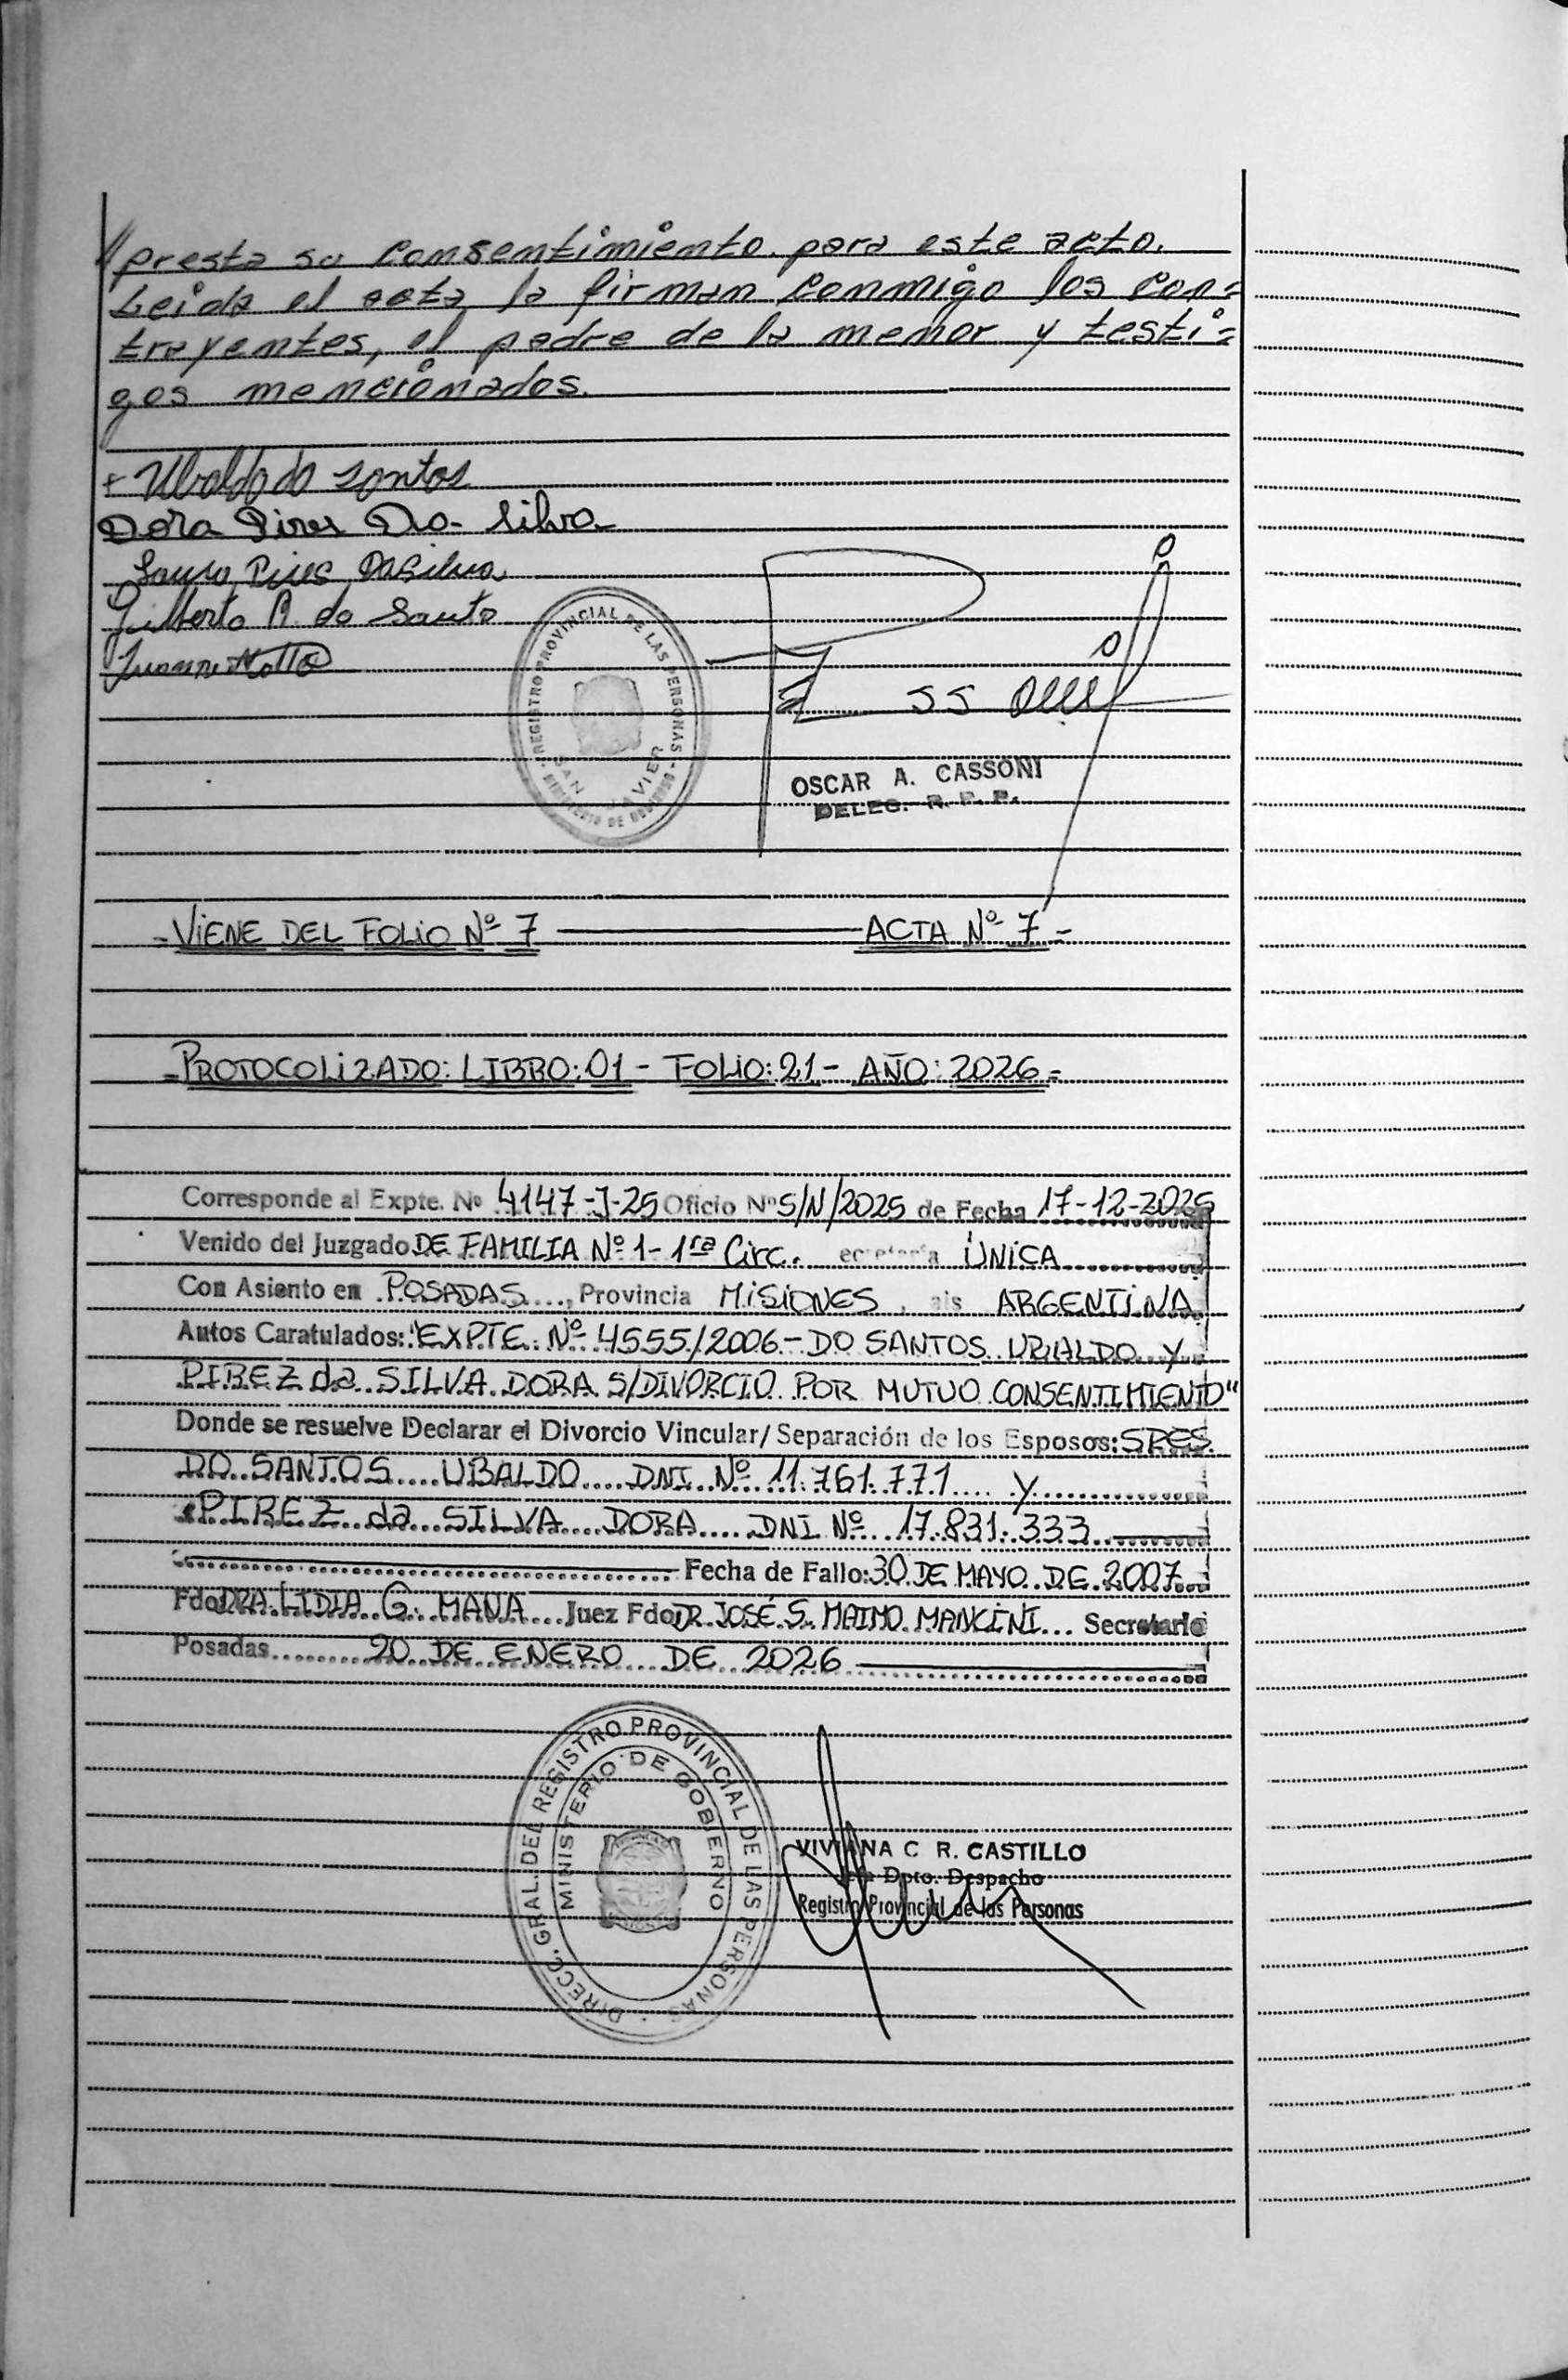 // presta su consentimiento para este acto.
Leida el acta la firman conmigo los con=
trayentes, el padre de la menor y testi=
gos mencionados.
+ Ubaldo do santos
Dora Pires Da Silva
Pires Dasilva
Gilberto A. do Santo
REGISTRO PROVINCIAL DE LAS PERSONAS
SAN JAVIER
MINISTERIO DE GOBIERNO
OSCAR A. CASSONI
DELEG. R. P. P.
-VIENE DEL FOLIO Nº 7 ACTA Nº 7-
-PROTOCOLIZADO: LIBRO: 01 - FOLIO: 21 - AÑO: 2026-
Corresponde al Expte. Nº 4147-J-25 Oficio Nº S/N/2025 de Fecha 17-12-2025
Venido del Juzgado DE FAMILIA Nº 1 - 1ra Circ. ecretaría ÚNICA
Con Asiento en POSADAS, Provincia MISIONES, ais ARGENTINA
Autos Caratulados: "EXPTE. Nº 4555/2006 - DO SANTOS UBALDO Y
PIREZ da SILVA DORA S/DIVORCIO POR MUTUO CONSENTIMIENTO"
Donde se resuelve Declarar el Divorcio Vincular/ Separación de los Esposos: SRES.
DO SANTOS UBALDO DNI Nº 11.761.771 y
PIREZ da SILVA DORA DNI Nº 17.831.333
Fecha de Fallo: 30 DE MAYO DE 2007
Fdo DRA. LIDIA G. MANA Juez Fdo DR. JOSÉ S. MAIMO MANCINI Secretario
Posadas 20 DE ENERO DE 2026
DIRECC. GRAL. DEL REGISTRO PROVINCIAL DE LAS PERSONAS
MINISTERIO DE GOBIERNO
VIVIANA C R. CASTILLO
Dpto. Despacho
Registro Provincial de las Personas